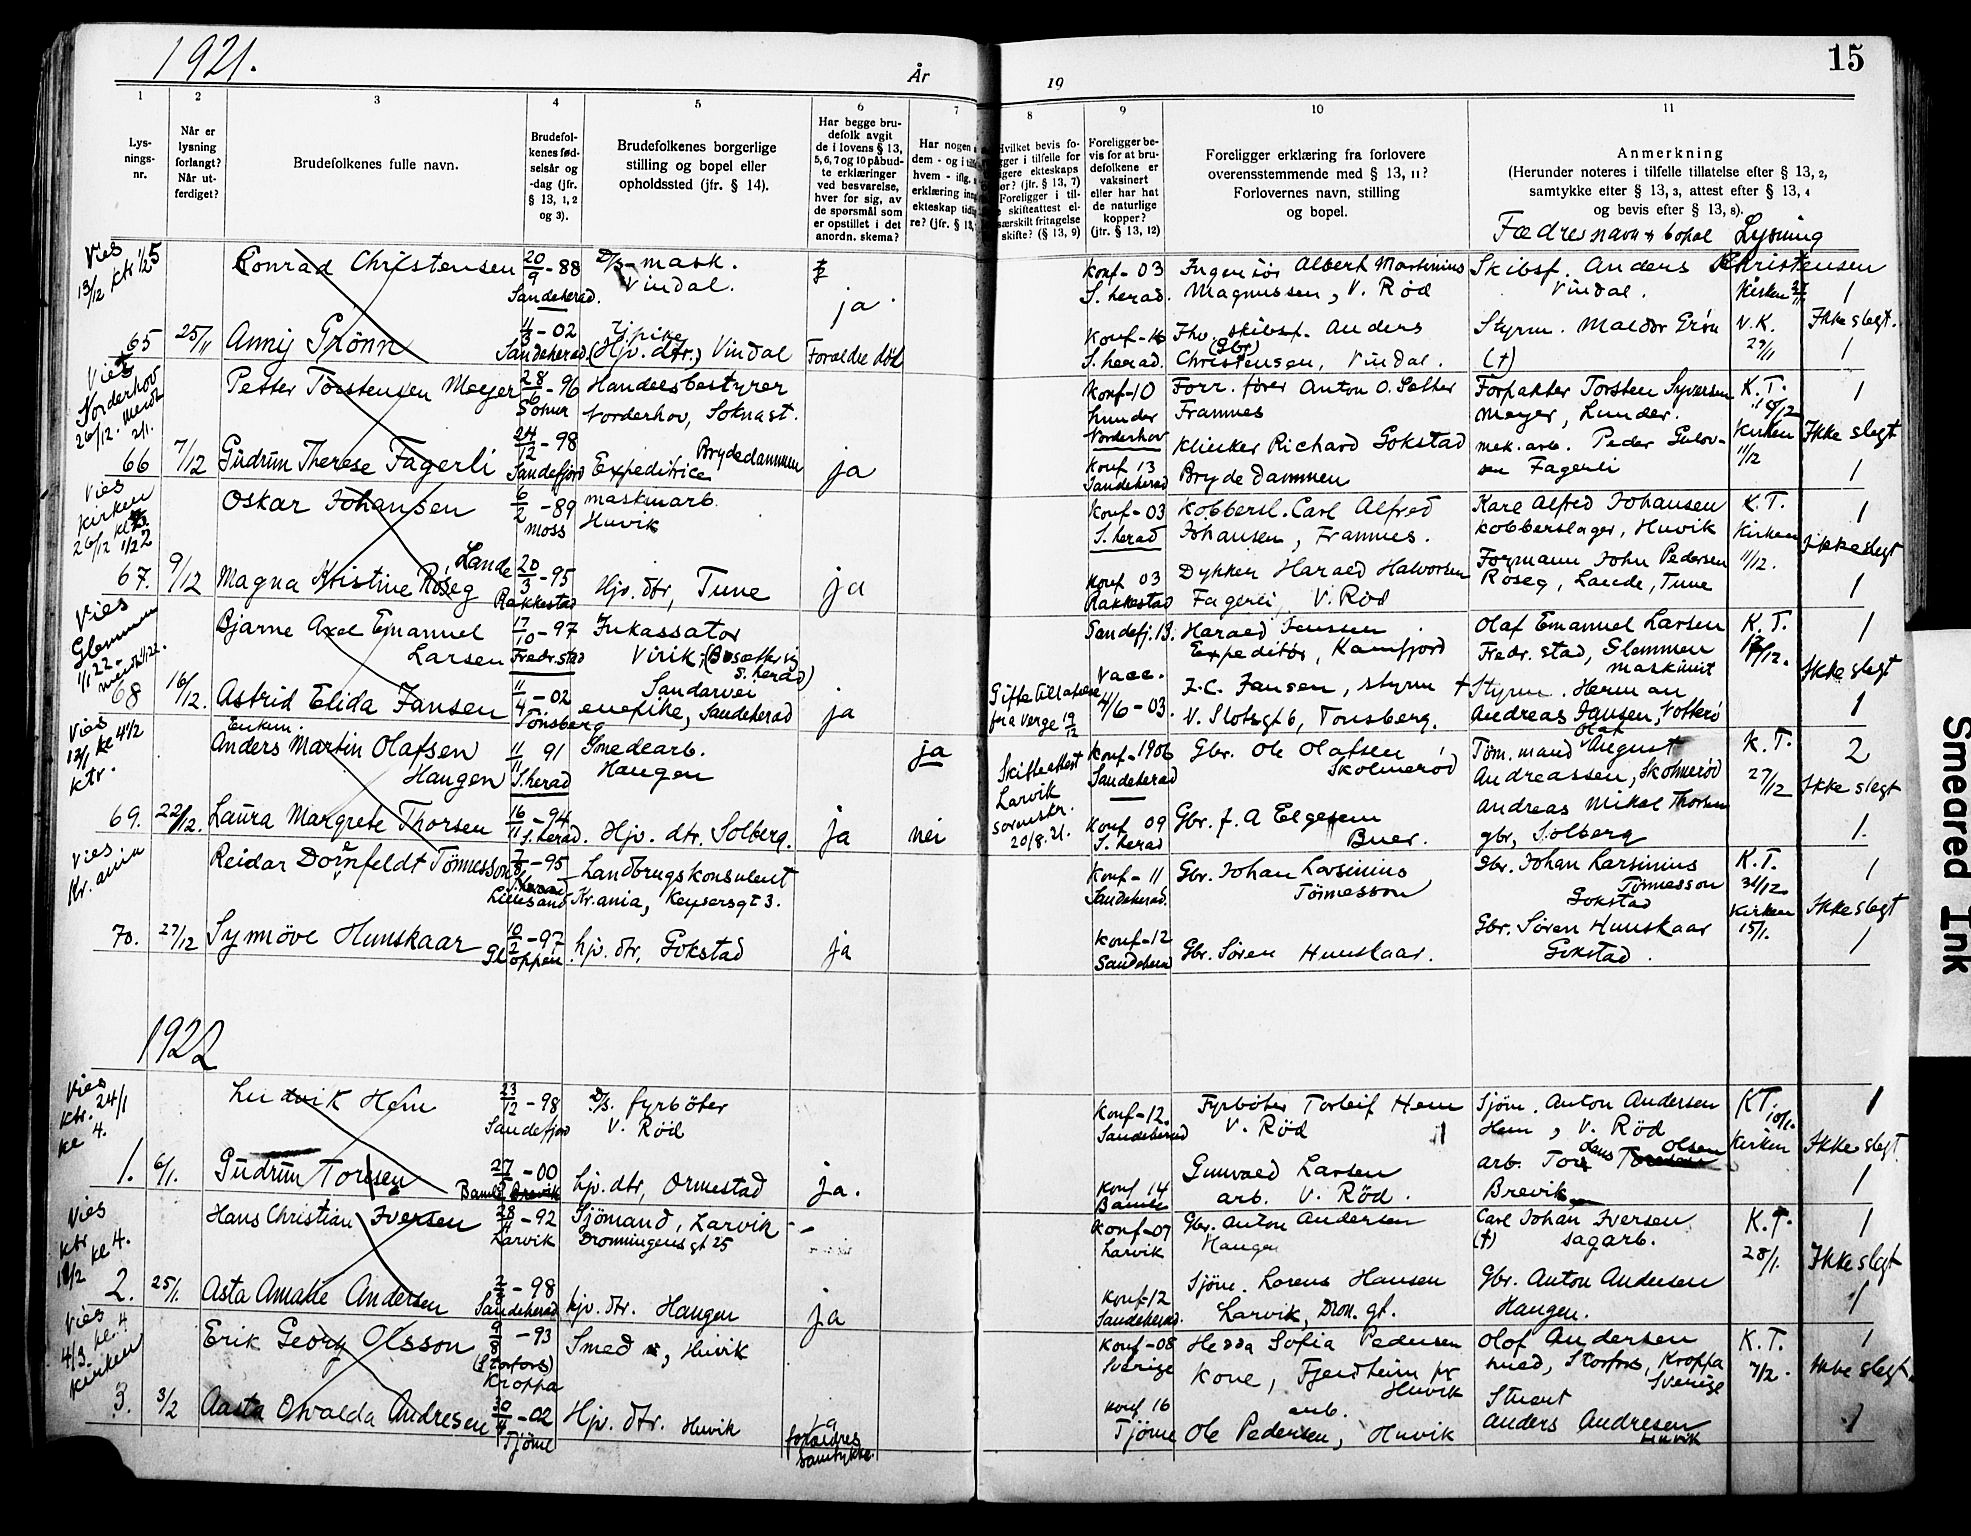 1921.
År
19
15
1
2
3
4
5
6
7
8
9
10
11
Lys-
nings-
nr.
Når er
lysning
forlangt?
Når ut-
ferdiget?
Brudefolkenes fulle navn.
Brudefol-
kenes fød-
selsår og
-dag (jfr.
§ 13, 1, 2
og 3).
Brudefolkenes borgerlige
stilling og bopel eller
opholdssted (jfr. § 14).
Har begge bru-
defolk avgit
de i lovens § 13,
5, 6, 7 og 10 påbud-
te erklæringer
ved besvarelse,
hver for sig, av
de spørsmål som
er opstillet i det
anordn. skema?
Har nogen
dem - og i
hvem - iflg.
erklæring inn
ekteskap tid
re? (jfr. § 13,
Hvilket bevis fo-
gger i tilfelle for
igere ekteskaps
or? (jfr. § 13, 7)
Foreligger i til-
e skifteattest el-
særskilt fritagelse
skifte? (§ 13, 9)
Foreligger be-
vis for at bru-
defolkene er
vaksinert
eller har hat
de naturlige
kopper?
(jfr. § 13, 12)
Foreligger erklæring fra forlovere
overensstemmende med § 13, 11?
Forlovernes navn, stilling
og bopel.
Anmerkning
(Herunder noteres i tilfelle tillatelse efter § 13, 2,
samtykke efter § 13, 3, attest efter § 13, 4
og bevis efter § 13, 8).
Fædres navn & bopæl Lysning
Vies
13/12 ktr 1/2 5
Conrad Christensen
20/9 - 88
Sandeherad.
D/S - mask.
Vindal.
ja
konf - 03
S. herad.
Ingeniör Albert Martinius
Magnussen, V. Röd
Skibsf. Anders Christensen
Vindal.
Kirken 27/11
1
65
25/11
Anny Grönn
11/3 - 02
Sandeherad
Ijpike
(Hjv. dtr.) Vindal
Forældre död
Konf - 16
S. herad.
Fhv. skibsf. Anders
(Gbr)
Christensen, Vindal.
Styrm. Maldor Grön
(†)
V. K.
29/11
Ikke slegt.
1
Vies
Norderhov
26/12. meldt
2/1.
Petter Torstensen Meyer
28/6 - 96
Handelsbestyrer
Norderhov, Soknast.
konf - 10
Lunder
Norderhov
Forr. förer Anton O. Sæther
Framnes
Forpakter Torsten Syversen
Meyer, Lunder.
K. T.
1
66
7/12
Gudrun Therese Fagerli
24/12 - 98
Sandefjord
Brydedammen
Expeditrice
ja
Konf 13
Sandeherad
Klinker Richard Gokstad
Bryde Dammen
mek. arb. Peder Gulov-
sen Fagerli
Kirken
11/12
Ikke slegt
1
Vies
kirken
26/12 kl
1/2 2
Oskar Johansen
6/2 - 89
Moss
maskinarb.
Huvik
Konf - 03
S. herad
Kobbersl. Carl Alfred
Johansen, Framnes.
Karl Alfred Johansen
kobberslager, Huvik
K. T.
Kirken
1
67.
9/12
Magna Kristine Röseg, Lande
20/3 - 95
Rakkestad
Hjv. dtr, Tune
ja
Konf 03
Rakkestad
Dykker Harald Halvorsen
Fagerli, V. Röd
Formann John Pedersen
Röseg, Lande, Tune
11/12.
Ikke slegt
1
Vies
Glemmen
1/1 22.
Bjarne Axel Emanuel
Larsen
17/10 - 97
Fredr.stad
Inkassator
Virik, (Bosætter sig
S. herad)
Sandefj. 13.
Harald Jensen
Expeditör, Kamfjord
Olaf Emanuel Larsen
Fredr. stad, Glemmen
maskinist
K. T.
1
68
16/12.
Astrid Elida Jansen
11/4 - 02
Tönsberg
Sandarvei
enepike, Sandeherad
ja
Giftetillatelse
fra Verge 19/12
Vacc.
4/6 - 03.
J. C. Jansen, styrm
V. Slotsgt 6, Tönsberg.
† Styrm. Herman
Andreas Jansen, Nötterö
Ikke slegt
1
Vies
12/1 kl 4 1/2
ktr.
Enkem.
Anders Martin Olafsen
Haugen
11/11 91
S. herad
Smedearb.
Haugen
ja
Skifteattest
Larvik
sorenskr.
20/8. 21.
Konf - 1906
Sandeherad
Gbr. Ole Olafsen
Skolmeröd
Olaf
Töm. mand August
Andreassen, Skolmeröd
K. T.
27/12
2
Ikke slegt
69.
22/12.
Laura Margrete Thorsen
16/11 - 94
S. herad.
Hjv. dtr. Solberg.
ja
nei
Konf 09
S. herad
Gbr. J. A Elgesem
Buer.
Andreas Mikal Thorsen
gbr, Solberg
1.
Vies
Kr. ania
Reidar Dornfeldt Tönnesson
7/8 - 95
Lillesand
Landbrugskonsulent
Kr. ania, Keysersgt 3.
Konf - 11
Sandeherad.
Gbr. Johan Larsinius
Tönnesson
Gbr. Johan Larsinius
Tönnesson
Gokstad
K. T.
31/12.
1
Ikke slegt
70.
27/12
Synnöve Hunskaar
10/2 - 97
Gloppen
hjv. dtr, Gokstad
ja
Konf - 12
Sandeherad
Gbr. Sören Hunskaar.
Gbr. Sören Hunskaar
Gokstad.
Kirken
15/1.
1
1922
Vies
ktr. 24/1
kl 4.
Ludvik Hem
23/12 - 98
Sandefjord
D/S. fyrböter
V. Röd
Konf - 12.
Sandeherad
Fyrböter Torleif Hem
V. Röd
Sjöm. Anton Andersen
Hem, V. Röd
KT.
10/1.
1
1.
6/1.
Gudrun Toresen
27/ - 00
Bamle
hjv. dtr, Ormestad
ja.
Konf 14
Bamble
Gunvald Larsen
arb. V. Röd.
arb. Tor Olsen
Brevik
Kirken
Ikke slegt
1
Vies
ktr
kl 4.
Hans Christian Iversen
28/ - 92
Larvik
Sjömand, Larvik
Dronningensgt 25
Konf - 07
Larvik
Gbr. Anton Andersen
Haugen
Carl Johan Iversen
(†) sagarb.
K. T.
28/1.
1
Ikke slegt
2.
25/1.
Asta Amalie Andersen
2/8 - 98
Sandeherad
hjv. dtr. Haugen
ja
Konf - 12
Sandeherad.
Sjöm. Lorens Hansen
Larvik, Dron. gt.
Gbr. Anton Andersen
Haugen.
1
Vies
4/3. kl. 4
kirken
Erik Georg Olsson
9/8 - 93
(Storfors)
Kroppa
Smed, Huvik
konf - 08
Sverige
Hedda Sofia Pedersen
kone, Fjeldheim pr
Huvik
Olof Andersen
smed, Storfors, Kroppa
Sverige
K. T.
7/2.
1
Ikke slegt.
3.
3/2
Aasta Osvalda Andresen
30/4 - 02
Tjöme
Hjv. dtr. Huvik
ja
forældres
samtykke.
Konf 16
Tjöme
arb.
Ole Pedersen, Huvik
Stuert
Anders Andresen
Huvik
1
Smeared Ink